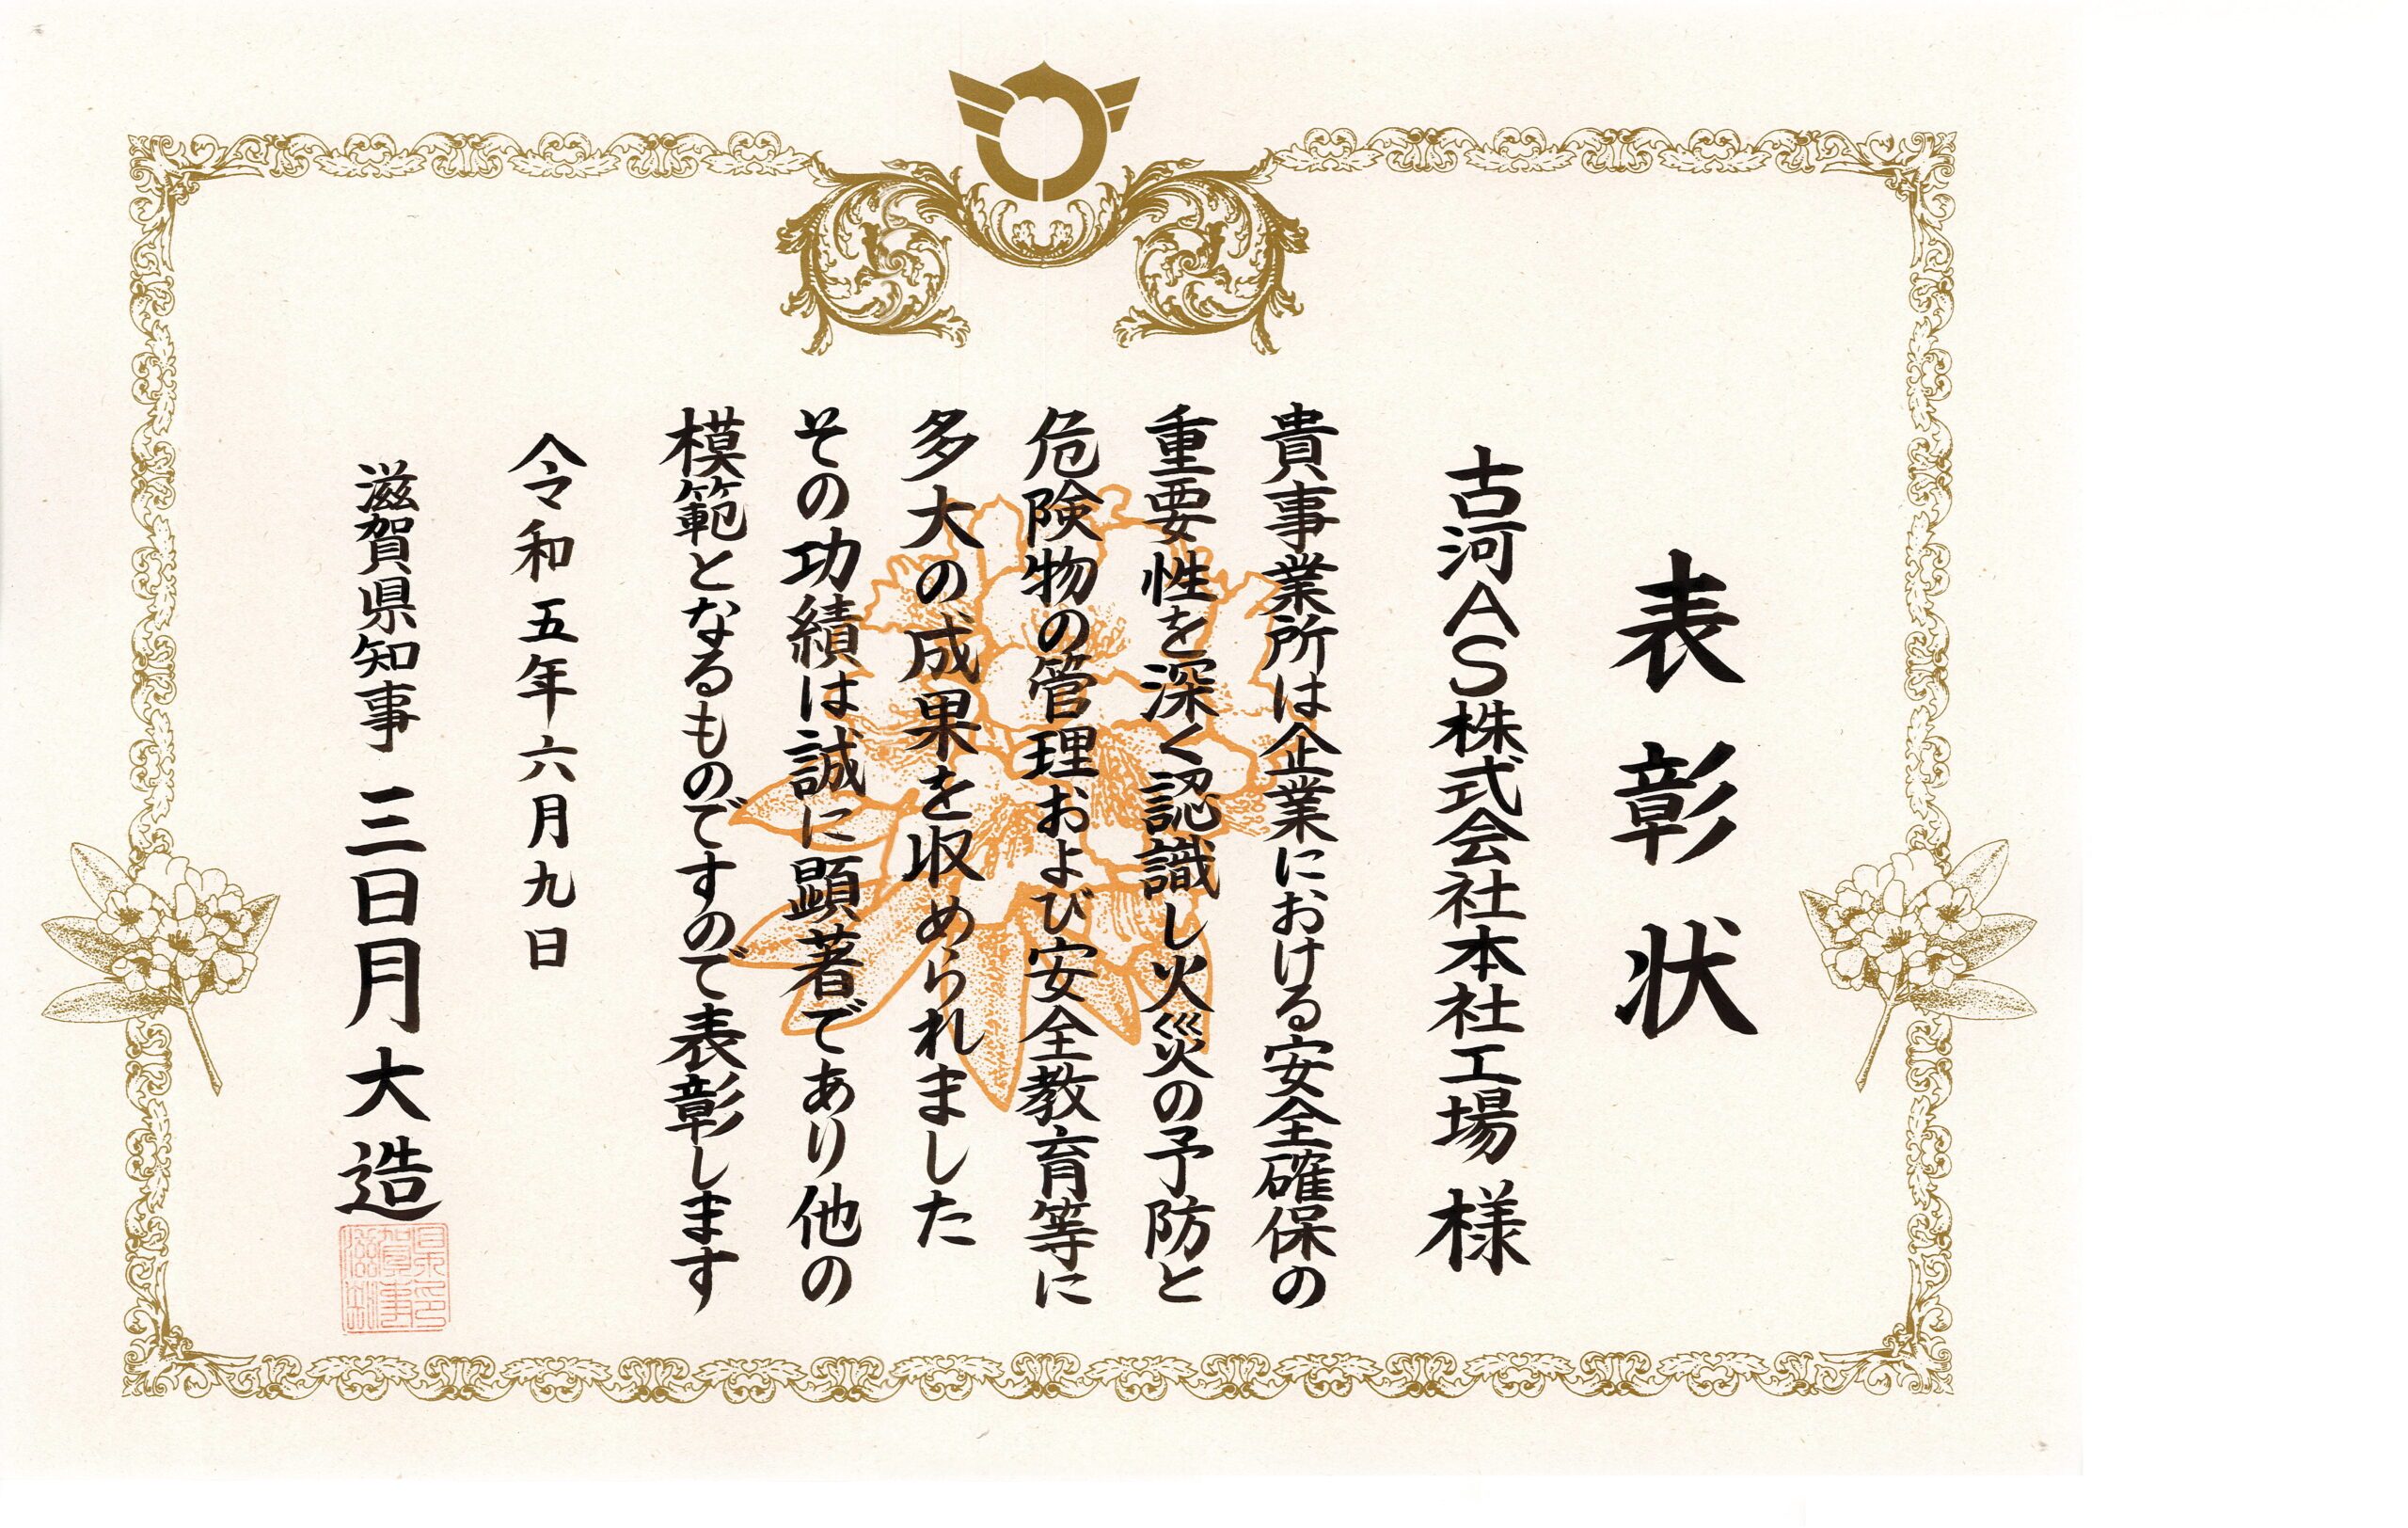 表彰状
古河AS株式会社本社工場 様
貴事業所は企業における安全確保の
重要性を深く認識し火災の予防と
危険物の管理および安全教育等に
多大の成果を収められました
その功績は誠に顕著であり他の
模範となるものですので表彰します
令和五年六月九日
滋賀県知事 三日月大造
滋賀県知事印